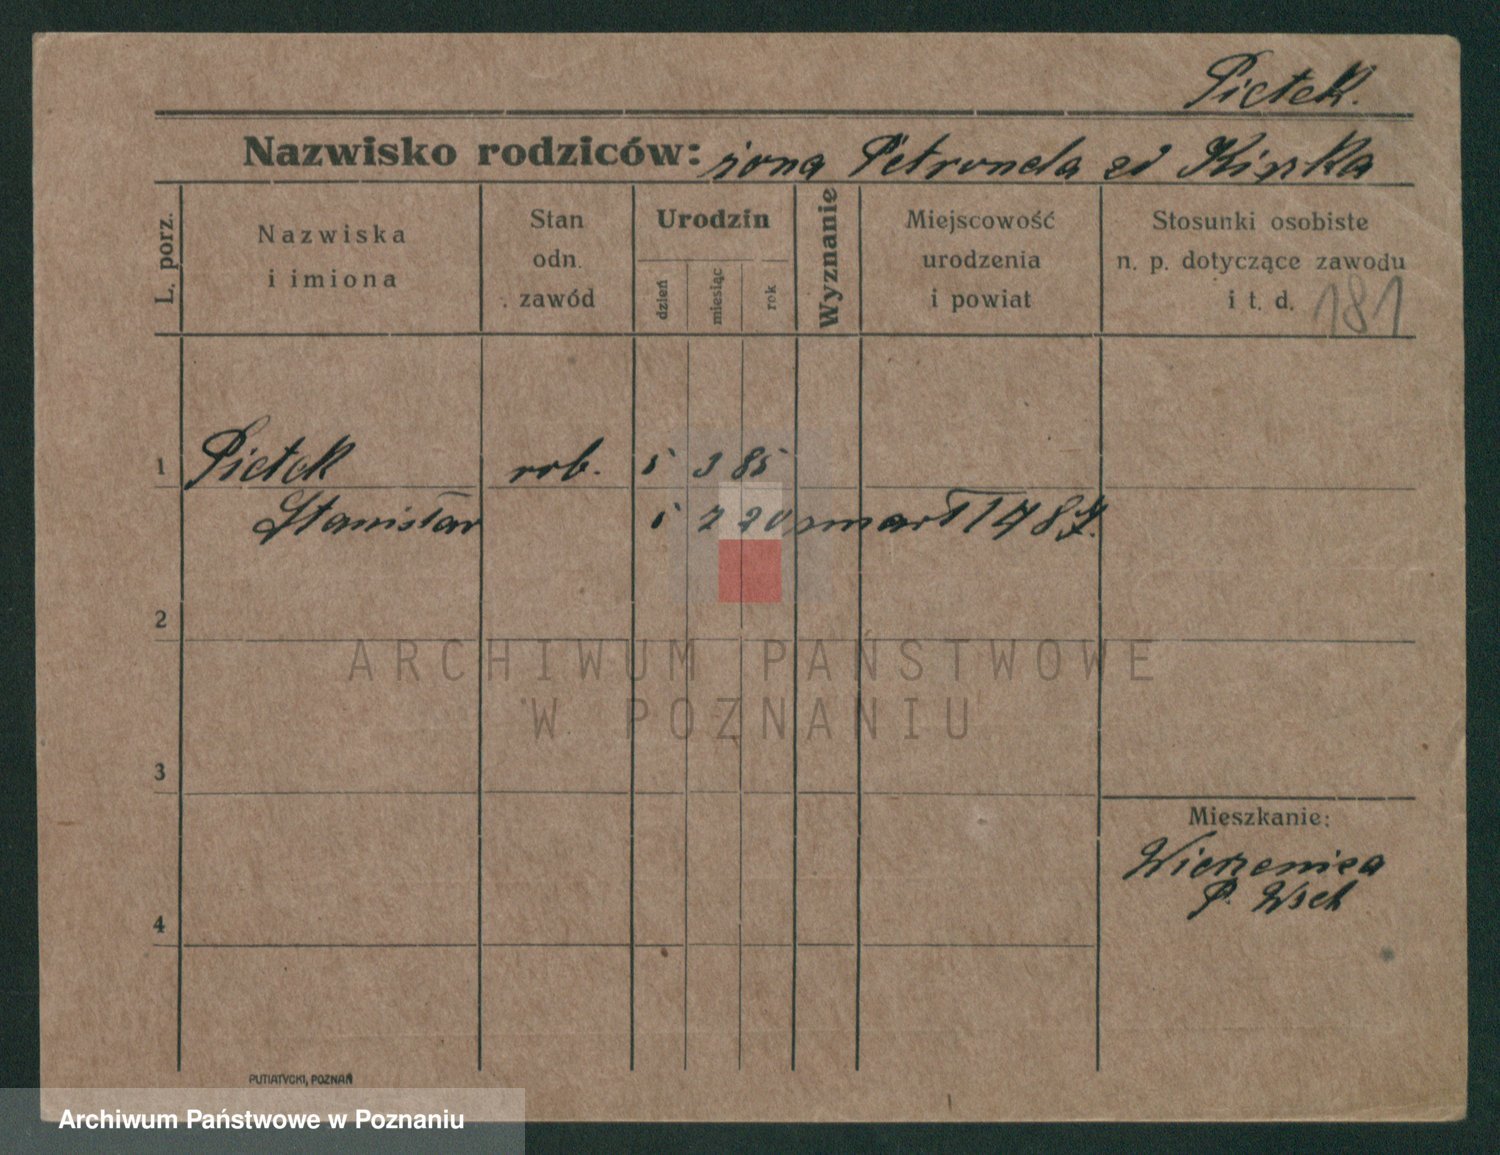 Piętek.
Nazwisko rodziców: żona Petronela zd
L. porz.
Nazwiska i imiona
Stan odn. zawód
Urodzin
dzień
miesiąc
rok
Wyznanie
Miejscowość urodzenia i powiat
Stosunki osobiste n. p. dotyczące zawodu i t. d.
181
1 Piętek rob. 5 3 85
Stanisław 5 2 20 zmarł
2
3
4
Mieszkanie:
Wierzenica
P. Wsch
PUTIATYCKI, POZNAŃ
ARCHIWUM PAŃSTWOWE
W POZNANIU
Archiwum Państwowe w Poznaniu